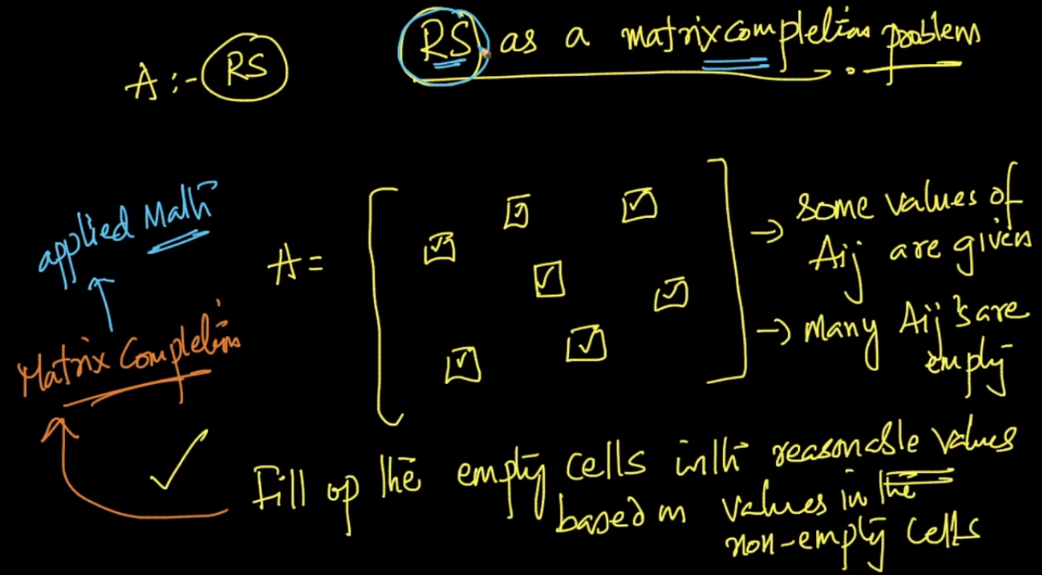 RS as a matrix completion problem
A :- RS
applied Math
Matrix Completion
A =
→ some values of
Aij are given
→ many Aij's are
empty
Fill up the empty cells with reasonable values
based on values in the
non-empty cells